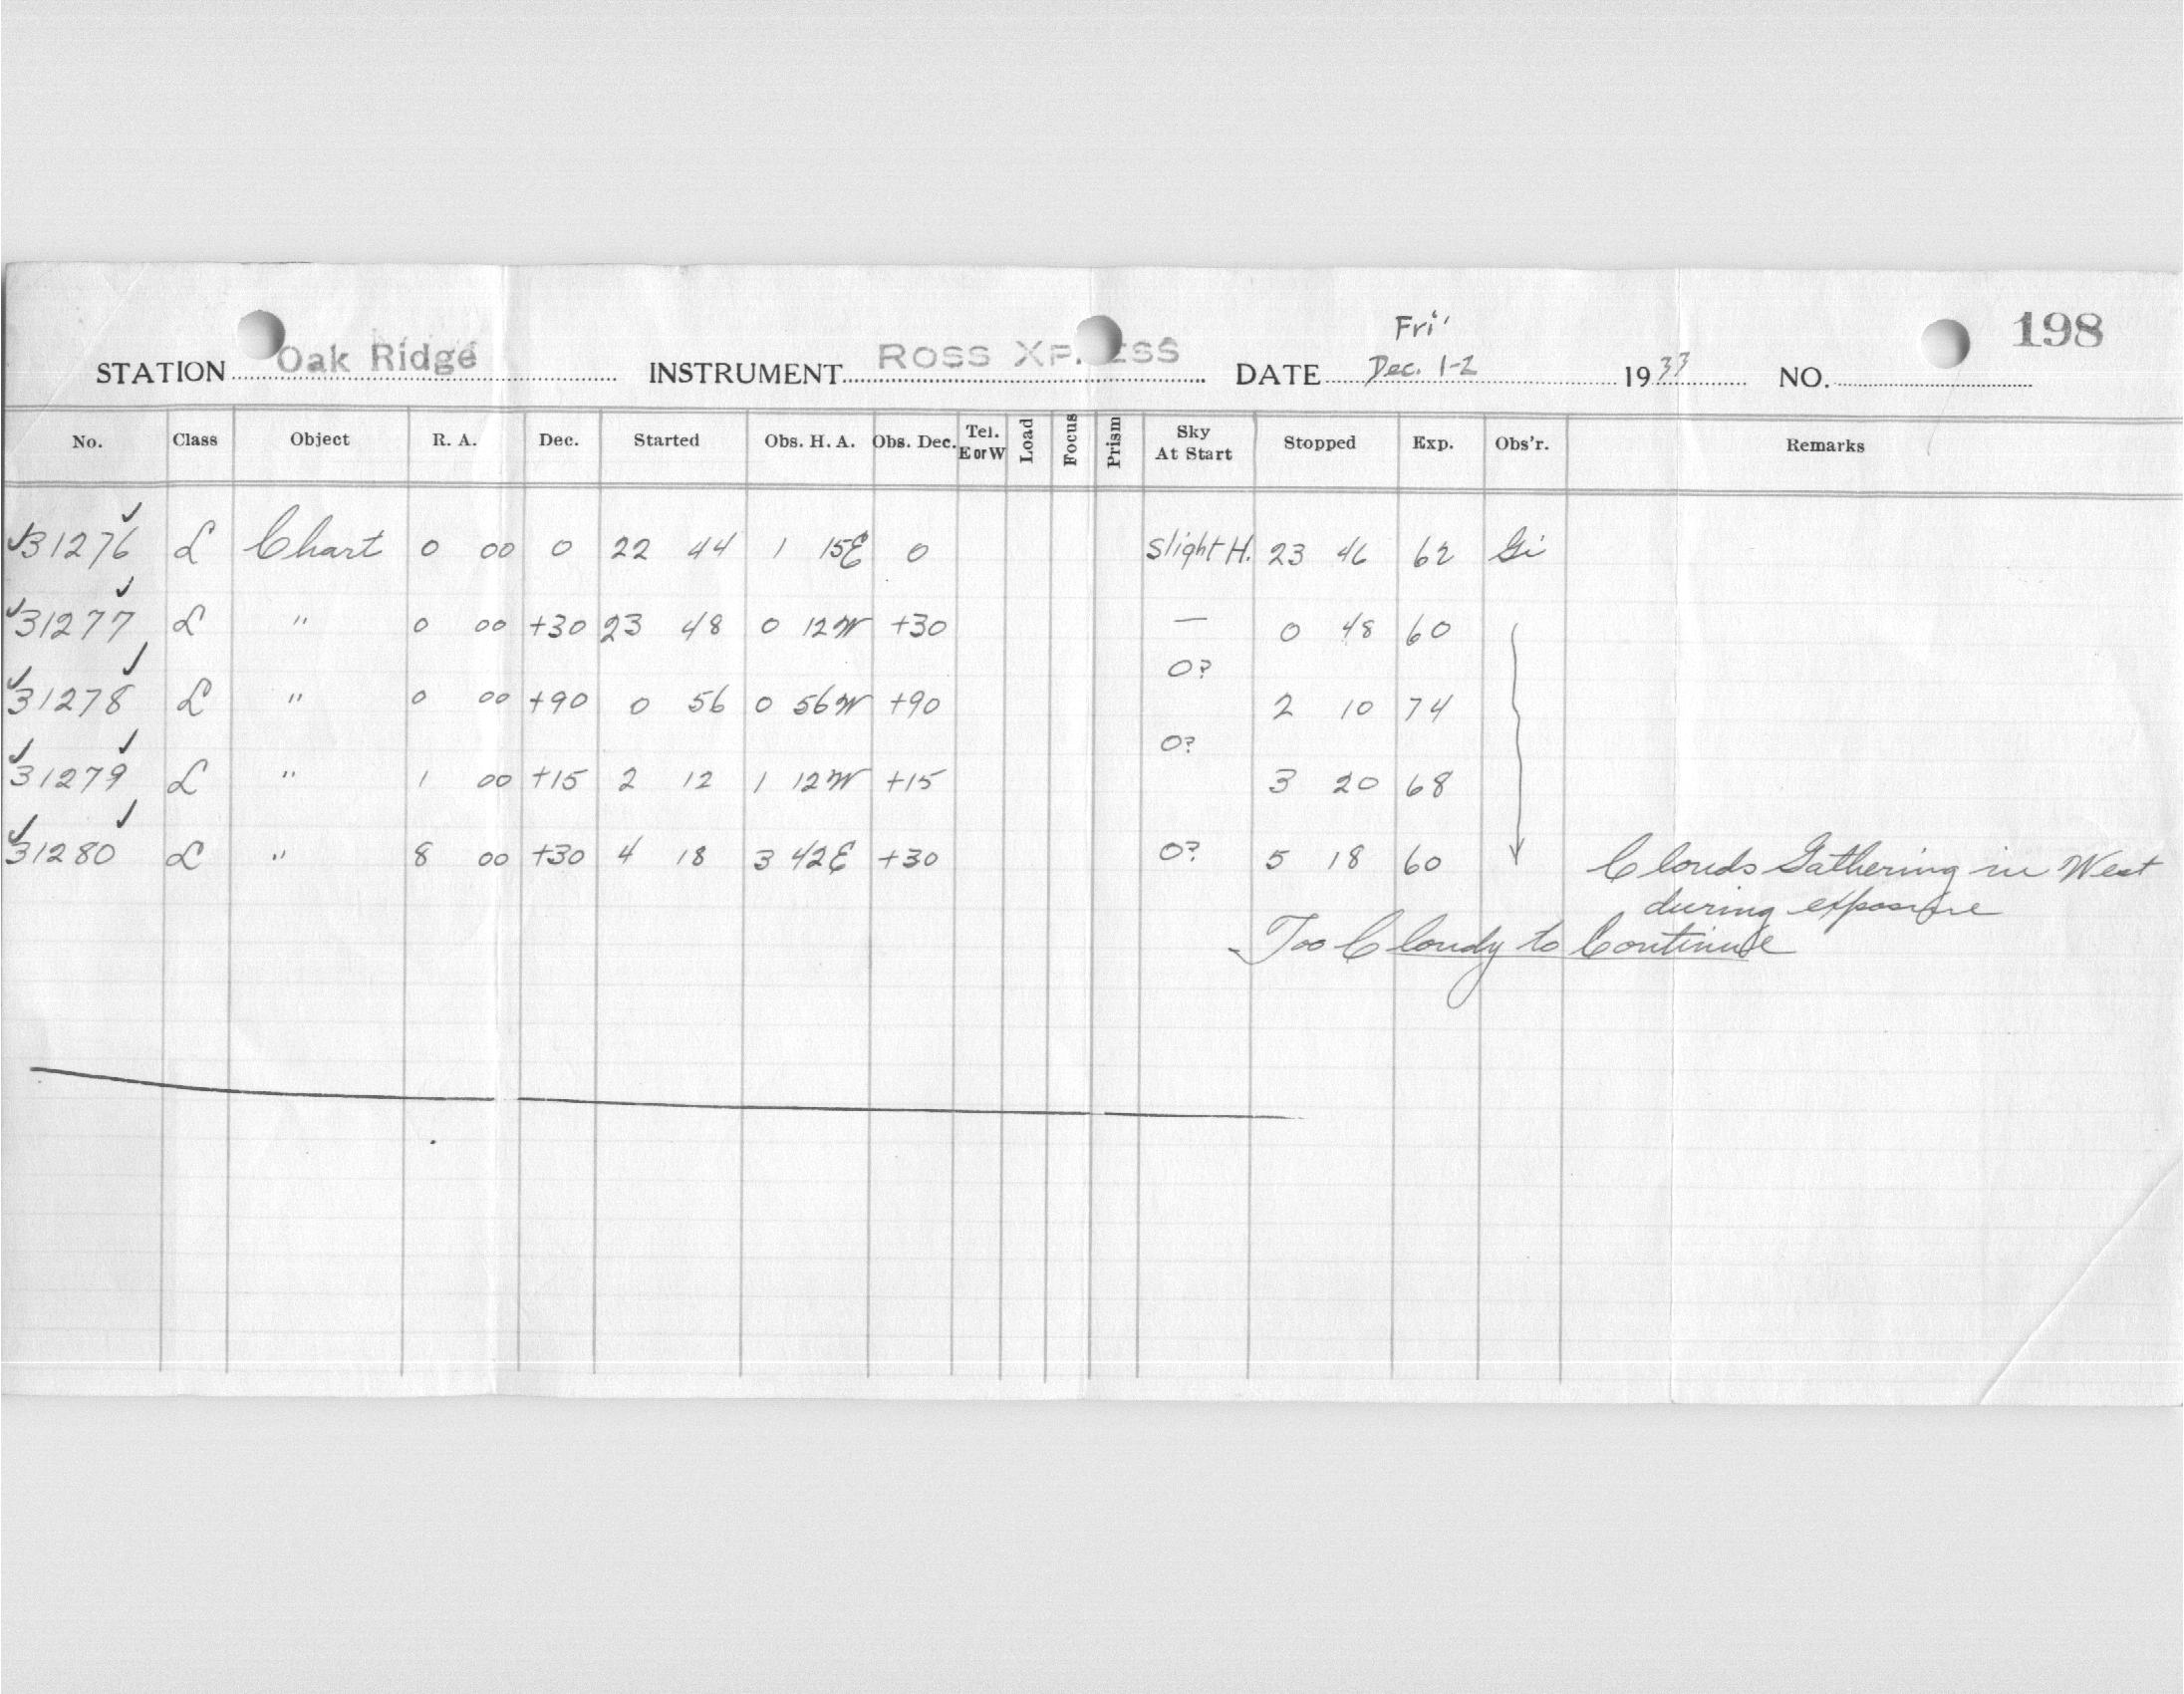 198
Fri'
STATION Oak Ridge INSTRUMENT ROSS XP ESS DATE Dec. 1-2 1933 NO.
No. Class Object R. A. Dec. Started Obs. H. A. Obs. Dec. Tel. E or W Load Focus Prism Sky At Start Stopped Exp. Obs'r. Remarks
✓31276 ✓ L Chart 0 00 0 22 44 1 15E 0 slight H. 23 46 62 Gi
✓31277 ✓ L " 0 00 +30 23 48 0 12W +30 — 0 48 60
✓31278 ✓ L " 0 00 +90 0 56 0 56W +90 0? 2 10 74
✓31279 ✓ L " 1 00 +15 2 12 1 12W +15 0? 3 20 68
✓31280 ✓ L " 8 00 +30 4 18 3 42E +30 0? 5 18 60 Clouds Gathering in West
during exposure
Too Cloudy to Continue